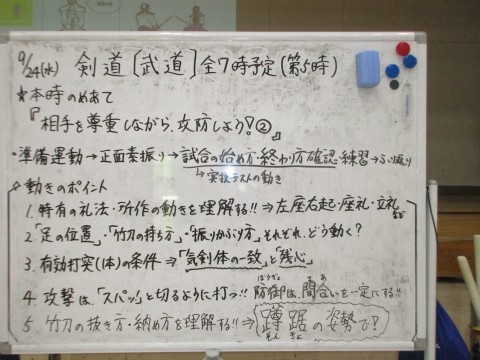 9/24(水) 剣道〔武道〕全7時予定(第5時)
☆本時のめあて
『相手を尊重しながら、攻防しよう!②』
・準備運動→正面素振り→試合の始め方・終わり方確認・練習→ふり返り
↳実技テストの動き
☆動きのポイント
1. 特有の礼法・所作の動きを理解する!!⇒左座右起・座礼・立礼など
2.「足の位置」・「竹刀の持ち方」・「振りかぶり方」それぞれ、どう動く?
3. 有効打突(一本)の条件⇒「気剣体の一致」と「残心」
4. 攻撃は、「スパッ」と切るように打つ!!防御(ぼうぎょ)は、間合(まあ)いを一定にする!!
5. 竹刀の抜き方・納め方を理解する!!⇒蹲踞(そんきょ)の姿勢で?